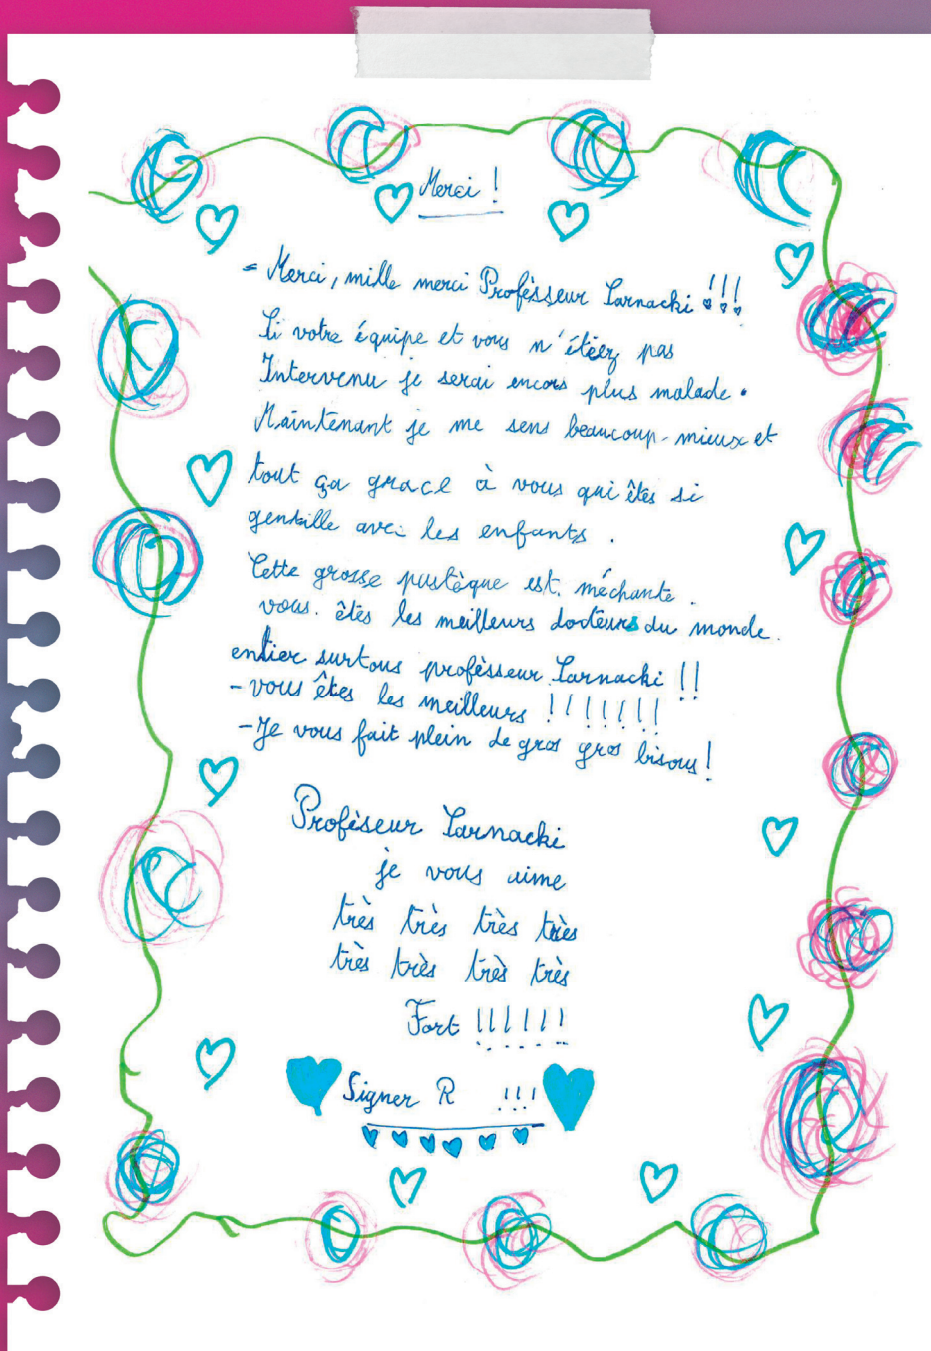 Merci !
= Merci, mille merci Profésseur Sarnacki !!!
Si votre équipe et vous n'étiez pas
Intervenu je serai encors plus malade.
Maintenant je me sens beaucoup mieux et
tout ça grace à vous qui êtes si
gentille avec les enfants.
Cette grosse pastèque est méchante.
vous êtes les meilleurs docteurs du monde.
entier surtous profésseur Sarnacki !!
- vous êtes les meilleurs !!!!!!!
- Je vous fait plein de gros gros bisous !
Proféseur Sarnacki
je vous aime
très très très très
très très très très
Fort !!!!!!
Signer R !!!